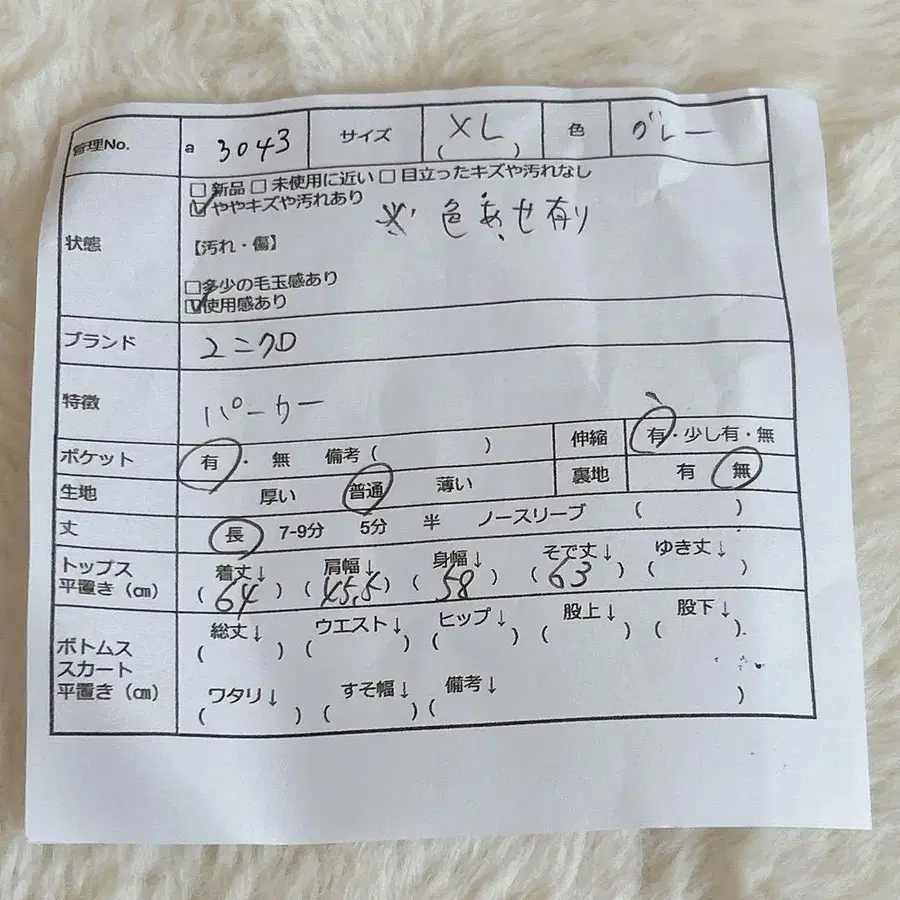 管理No. a 3043 サイズ XL ( ) 色 グレー
□ 新品 □ 未使用に近い □ 目立ったキズや汚れなし
☑ ややキズや汚れあり
※ 色あせ有り
状態 【汚れ・傷】
□ 多少の毛玉感あり
☑ 使用感あり
ブランド ユニクロ
特徴 パーカー
ポケット 有 ・ 無 備考 ( ) 伸縮 有・少し有・無
生地 厚い 普通 薄い 裏地 有 無
丈 長 7-9分 5分 半 ノースリーブ ( )
トップス 着丈↓ 肩幅↓ 身幅↓ そで丈↓ ゆき丈↓
平置き (㎝) ( 64 ) ( 45.5 ) ( 58 ) ( 63 ) ( )
総丈↓ ウエスト↓ ヒップ↓ 股上↓ 股下↓
ボトムス ( ) ( ) ( ) ( ) ( )
スカート
平置き (㎝) ワタリ↓ すそ幅↓ 備考↓
( ) ( ) ( )